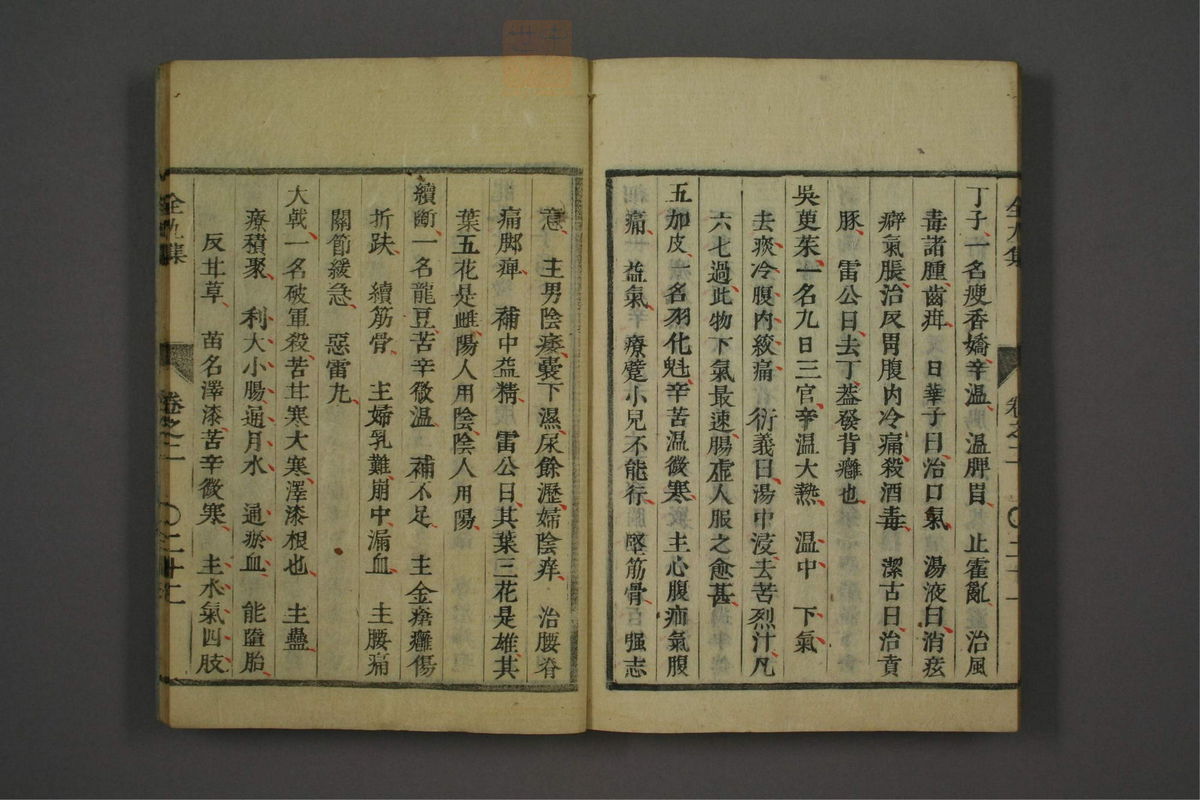 全九集 卷之二 〇二十一
丁子、一名瘦香嬌、辛温、 温脾胃、 止霍亂、 治風
毒諸腫、齒疳、 日華子曰、治口氣、 湯液曰、消痃
癖氣脹、治反胃腹内冷痛、殺酒毒、 潔古曰、治賁
豚、 雷公曰、去丁蓋、發背癰也、
吳茰茱、一名九日三官、辛温大熱、 温中、 下氣、
去痰冷、腹内絞痛、 衍義曰、湯中浸、去苦烈汁、凡
六七過、此物下氣最速、腸虛人服之愈甚、
五加皮、一名羽化魁、辛苦温微寒、 主心腹疝氣腹
痛、 益氣、 療躄小兒不能行、 堅筋骨、 强志
意、 主男陰痿、囊下濕、尿餘瀝、婦陰痒、 治腰脊
痛脚痺、 補中益精、 雷公曰、其葉三花是雄、其
葉五花是雌、陽人用陰、陰人用陽、
續斷、一名龍豆、苦辛微温、 補不足、 主金瘡癰傷
折趺、 續筋骨、 主婦乳難、崩中漏血、 主腰痛
關節緩急、 惡雷丸、
大戟、一名破軍殺、苦甘寒大寒、澤漆根也、 主蠱、
療積聚、 利大小腸、通月水、 通瘀血、 能墮胎、
反甘草、 苗名澤漆、苦辛微寒、 主水氣四肢
全九集 卷之二 〇二十二